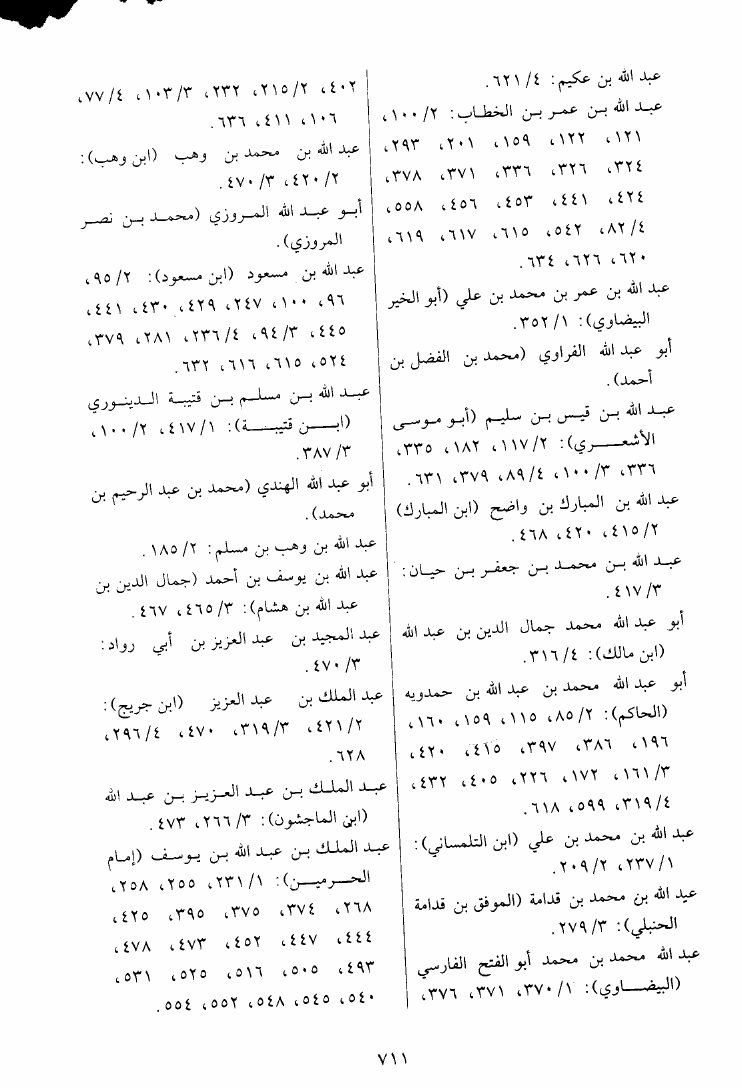 عبد الله بن عكيم: ٤/ ٦٢١.
عبـد الله بـن عمـر بـن الخطـاب: ٢/ ١٠٠،
١٢١، ١٢٢، ١٥٩، ٢٠١، ٢٩٣،
٣٢٤، ٣٢٦، ٣٣٦، ٣٧١، ٣٧٨،
٤٢٤، ٤٤١، ٤٥٣، ٤٥٦، ٥٥٨،
٤/ ٨٢، ٥٤٢، ٦١٥، ٦١٧، ٦١٩،
٦٢٠، ٦٢٦، ٦٣٤.
عبد الله بن عمر بن محمد بن علي (أبو الخير
البيضاوي): ١/ ٣٥٢.
أبو عبد الله الفراوي (محمد بن الفضل بن
أحمد).
عبـد الله بـن قيـس بـن سليـم (أبـو مـوسـى
الأشعـــري): ٢/ ١١٧، ١٨٢، ٣٣٥،
٣٣٦، ٣/ ١٠٠، ٤/ ٨٩، ٣٧٩، ٦٣١.
عبد الله بن المبارك بن واضح (ابن المبارك)
٢/ ٤١٥، ٤٢٠، ٤٦٨.
عبـد الله بـن محمـد بـن جعفـر بـن حيـان:
٣/ ٤١٧.
أبو عبد الله محمد جمال الدين بن عبد الله
(ابن مالك): ٤/ ٣١٦.
أبو عبد الله محمد بن عبد الله بن حمدويه
(الحاكم): ٢/ ٨٥، ١١٥، ١٥٩، ١٦٠،
١٩٦، ٣٨٦، ٣٩٧، ٤١٥، ٤٢٠،
٣/ ١٦١، ١٧٢، ٢٢٦، ٤٠٥، ٤٣٢،
٤/ ٣١٩، ٥٩٩، ٦١٨.
عبد الله بن محمد بن علي (ابن التلمساني):
١/ ٢٣٧، ٢/ ٢٠٩.
عبد الله بن محمد بن قدامة (الموفق بن قدامة
الحنبلي): ٣/ ٢٧٩.
عبد الله محمد بن محمد أبو الفتح الفارسي
(البيضـــاوي): ١/ ٣٧٠، ٣٧١، ٣٧٦،
٤٠٢، ٢/ ٢١٥، ٢٣٢، ٣/ ١٠٣، ٤/ ٧٧،
١٠٦، ٤١١، ٦٣٦.
عبد الله بن محمد بن وهب (ابن وهب):
٢/ ٤٢٠، ٣/ ٤٧٠.
أبـو عبـد الله المـروزي (محمـد بـن نصـر
المروزي).
عبد الله بن مسعود (ابن مسعود): ٢/ ٩٥،
٩٦، ١٠٠، ٢٤٧، ٤٢٩، ٤٣٠، ٤٤١،
٤٤٥، ٣/ ٩٤، ٤/ ٢٣٦، ٢٨١، ٣٧٩،
٥٢٤، ٦١٥، ٦١٦، ٦٣٢.
عبـد الله بـن مسلـم بـن قتيبـة الـدينـوري
(ابـــن قتيبـــة): ١/ ٤١٧، ٢/ ١٠٠،
٣/ ٣٨٧.
أبو عبد الله الهندي (محمد بن عبد الرحيم بن
محمد).
عبد الله بن وهب بن مسلم: ٢/ ١٨٥.
عبد الله بن يوسف بن أحمد (جمال الدين بن
عبد الله بن هشام): ٣/ ٤٦٥، ٤٦٧.
عبد المجيد بن عبد العزيز بن أبي رواد:
٣/ ٤٧٠.
عبد الملك بن عبد العزيز (ابن جريج):
٢/ ٤٢١، ٣/ ٣١٩، ٤٧٠، ٤/ ٢٩٦،
٦٢٨.
عبـد الملـك بـن عبـد العـزيـز بـن عبـد الله
(ابن الماجشون): ٣/ ٢٦٦، ٤٧٣.
عبـد الملـك بـن عبـد الله بـن يـوسـف (إمـام
الحـــرميـــن): ١/ ٢٣١، ٢٥٥، ٢٥٨،
٢٦٨، ٣٧٤، ٣٧٥، ٣٩٥، ٤٢٥،
٤٤٤، ٤٤٧، ٤٥٢، ٤٧٣، ٤٧٨،
٤٩٣، ٥٠٥، ٥١٦، ٥٢٥، ٥٣١،
٥٤٠، ٥٤٥، ٥٤٨، ٥٥٢، ٥٥٤.
٧١١